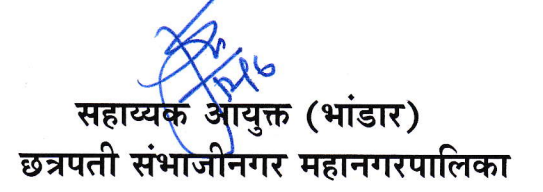 सहाय्यक आयुक्त (भांडार)
छत्रपती संभाजीनगर महानगरपालिका